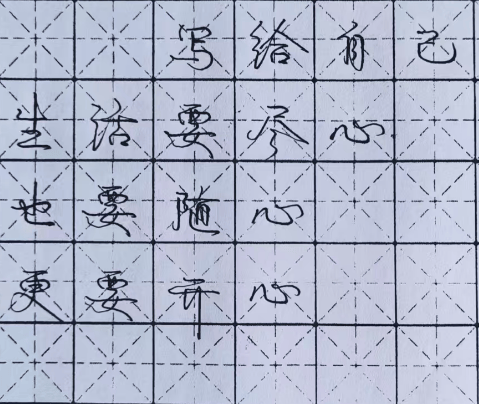 写给自己
生活要尽心
也要随心
更要开心